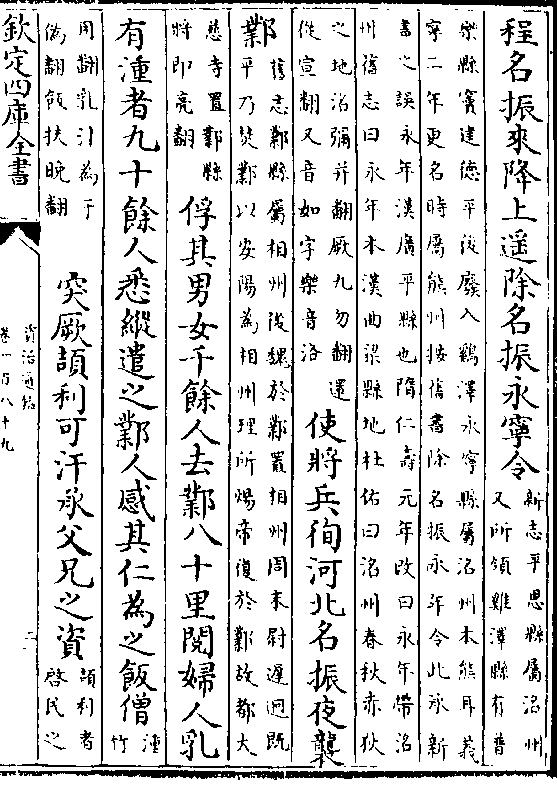 程名振來降上遥除名振永寧令
新志平恩縣屬洺州
又所領雞澤縣有普
樂縣竇建德平後廢入鷄澤永寧縣屬洺州本熊耳義
寧二年更名時屬熊州按舊書除名振永年令此永新
書之誤永年漢廣平縣也隋仁壽元年改曰永年帶洺
州舊志曰永年本漢曲梁縣地杜佑曰洺州春秋赤狄
之地洺彌并翻厥九勿翻還
從宣翻又音如字樂音洛
使將兵徇河北名振夜襲
鄴
舊志鄴縣屬相州後魏於鄴置相州周末尉遲迥既
平乃焚鄴以安陽為相州理所煬帝復於鄴故都大
慈寺置鄴縣
將即亮翻
俘其男女千餘人去鄴八十里閱婦人乳
有湩者九十餘人悉縱遣之鄴人感其仁為之飯僧
湩
竹
用翻乳汁為于
偽翻飯扶晚翻
突厥頡利可汗承父兄之資
頡利者
啓民之
欽定四庫全書
資治通鑑
卷一百八十九
二